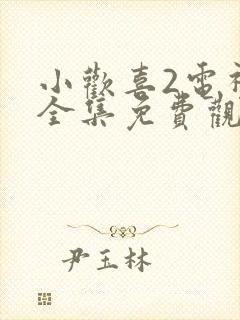 小歡喜2電視
全集免費觀
尹玉林